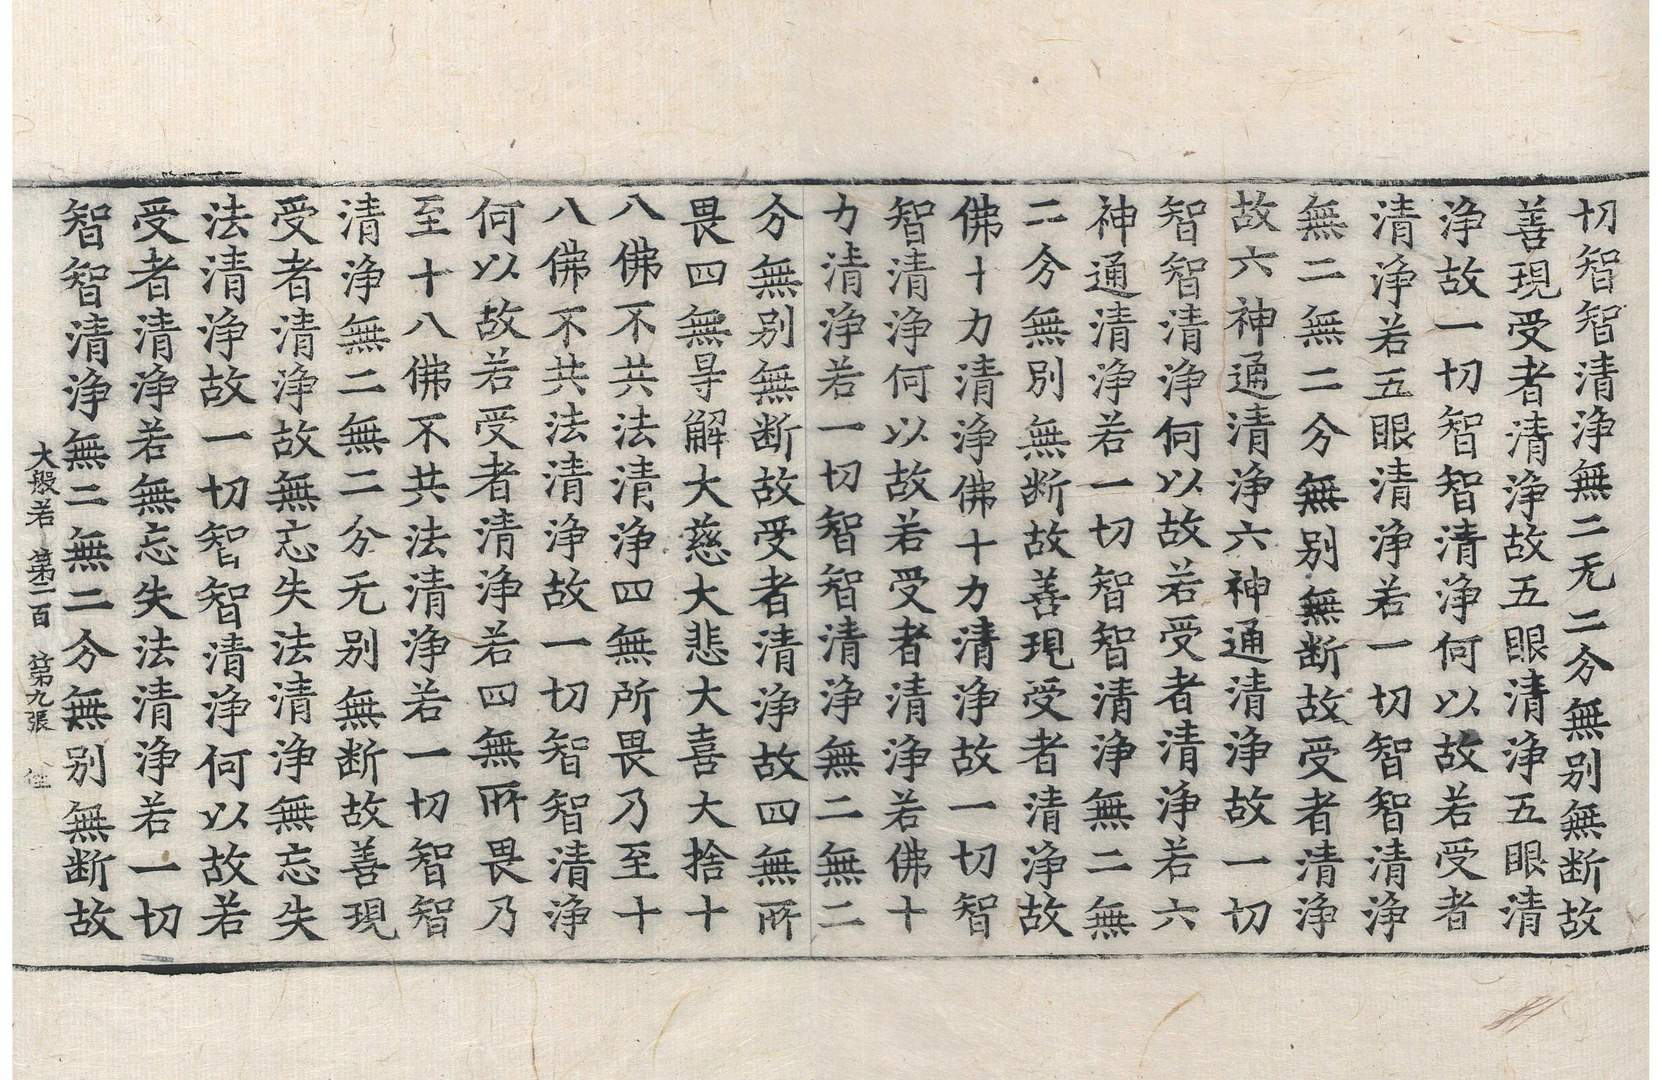 切智智清浄無二无二分無别無断故
善現受者清浄故五眼清浄五眼清
浄故一切智智清浄何以故若受者
清浄若五眼清浄若一切智智清浄
無二無二分無别無断故受者清浄
故六神通清浄六神通清浄故一切
智智清浄何以故若受者清浄若六
神通清浄若一切智智清浄無二無
二分無别無断故善現受者清浄故
佛十力清浄佛十力清浄故一切智
智清浄何以故若受者清浄若佛十
力清浄若一切智智清浄無二無二
分無别無断故受者清浄故四無所
畏四無㝵解大慈大悲大喜大捨十
八佛不共法清浄四無所畏乃至十
八佛不共法清浄故一切智智清浄
何以故若受者清浄若四無所畏乃
至十八佛不共法清浄若一切智智
清浄無二無二分无别無断故善現
受者清浄故無忘失法清浄無忘失
法清浄故一切智智清浄何以故若
受者清浄若無忘失法清浄若一切
智智清浄無二無二分無别無断故
大般若 第二百 第九張